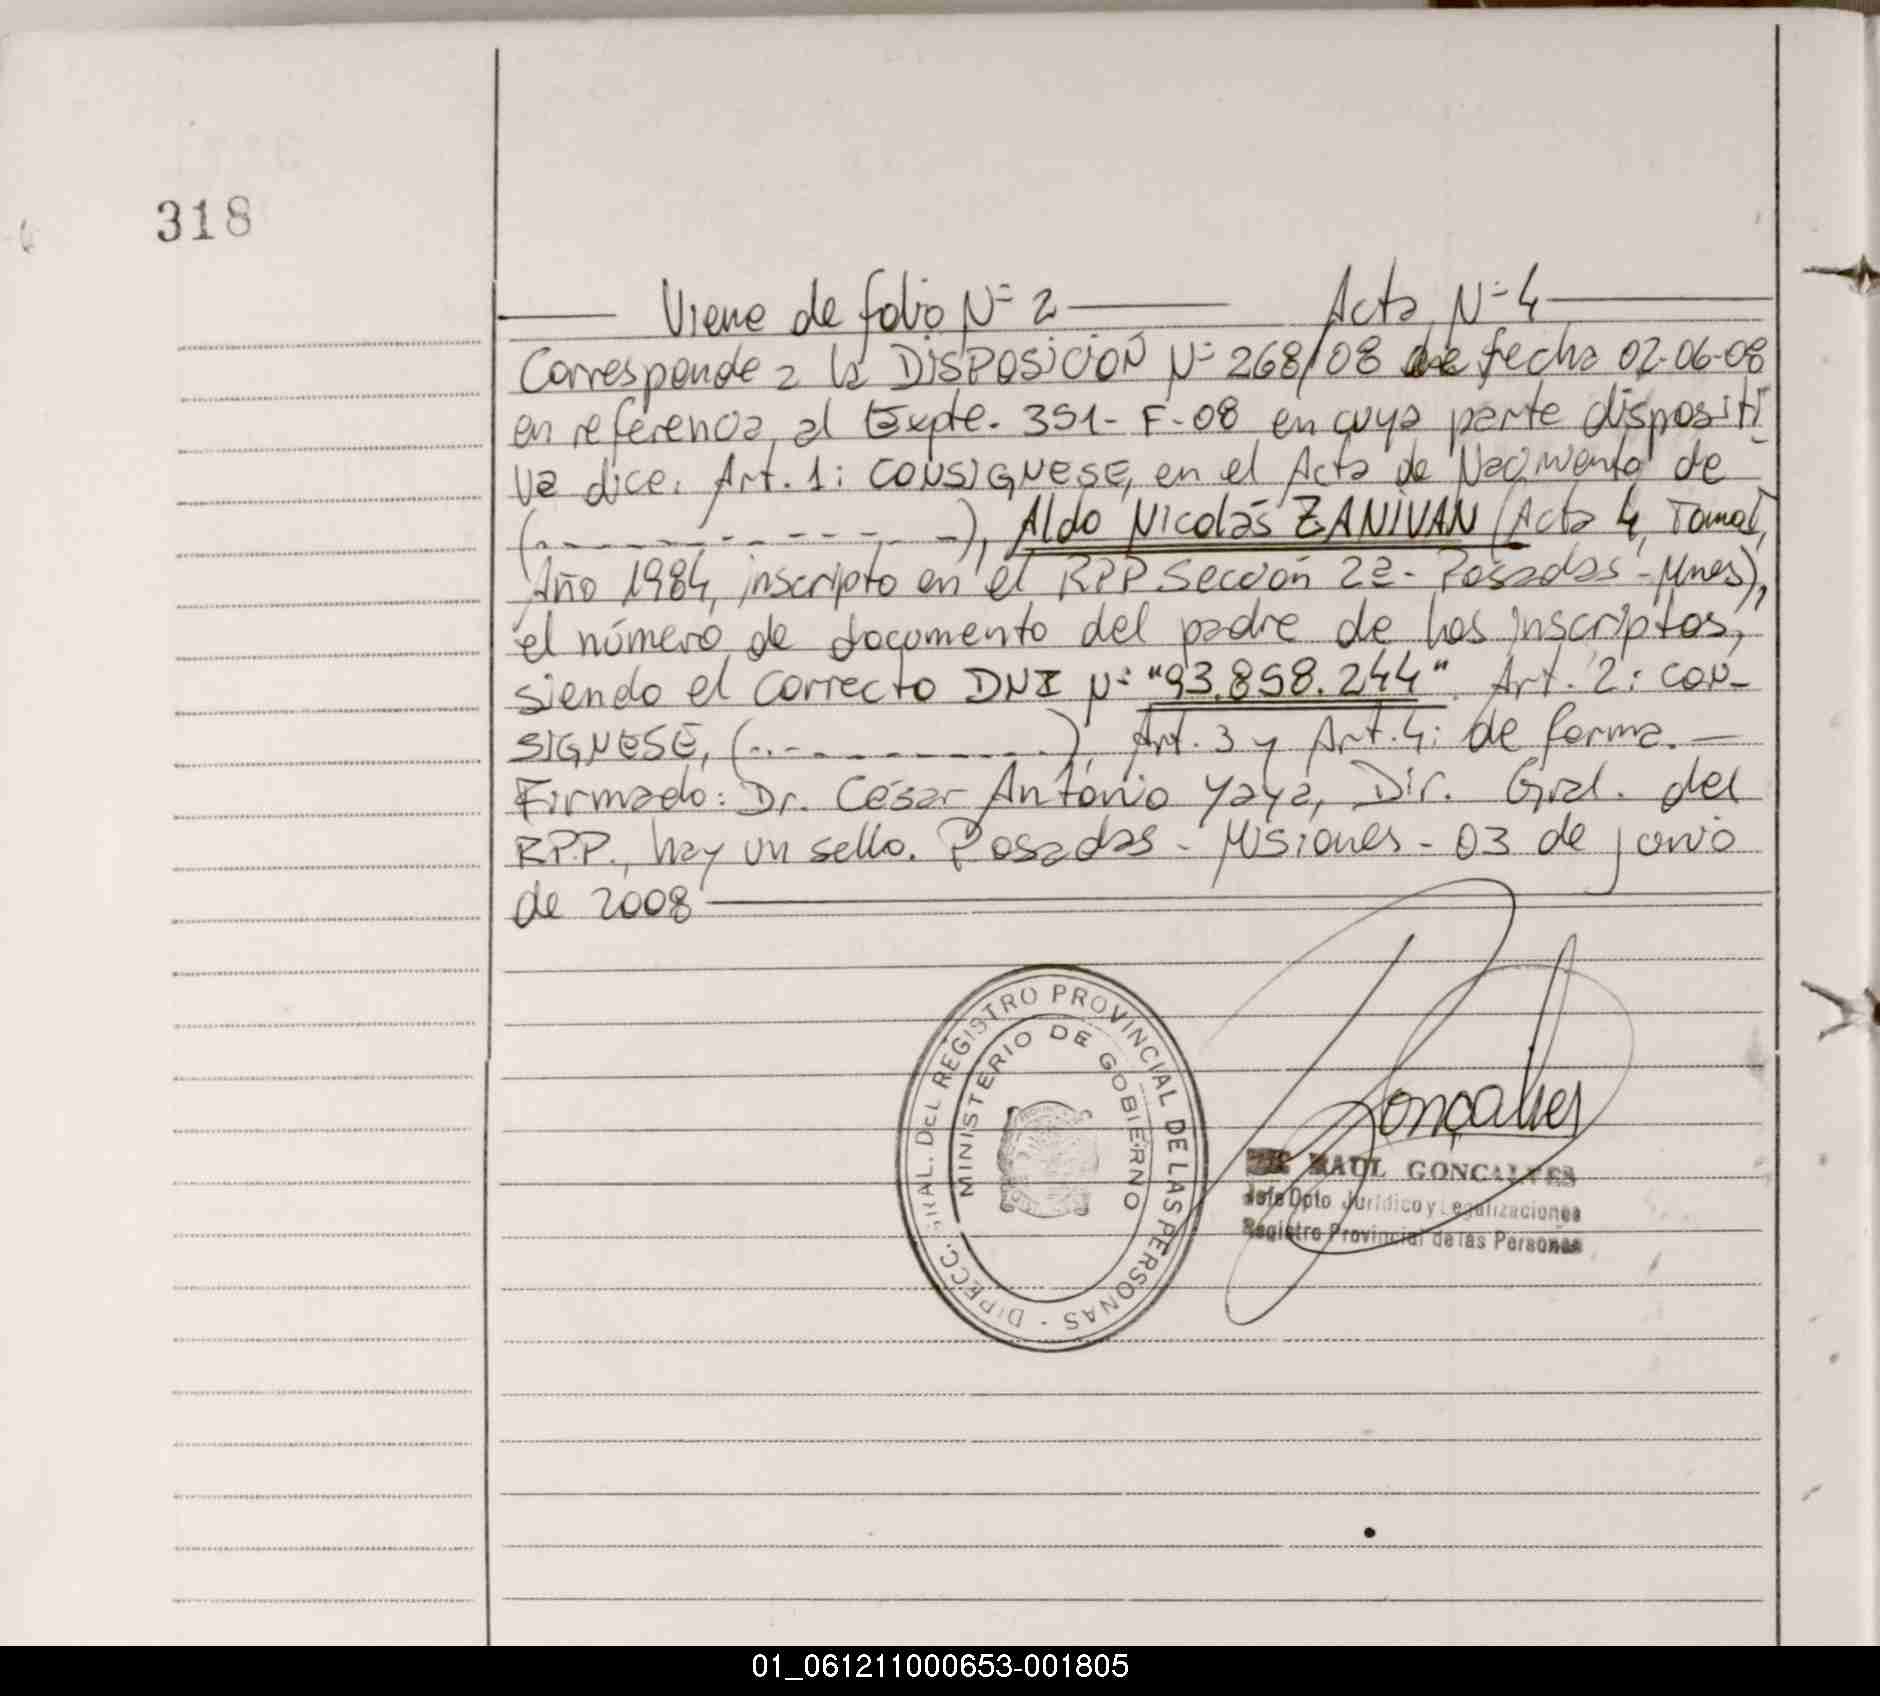 318
Viene de folio Nº 2 Acta Nº 4
Corresponde a la DISPOSICIÓN Nº 268/08 de fecha 02-06-08
en referencia al Expte. 351-F-08 en cuya parte dispositi
va dice. Art. 1: CONSIGNESE, en el Acta de Nacimiento de
(. - - - - - - - - - - - -), Aldo Nicolás ZANIVAN (Acta 4, Tomo I,
Año 1984, inscripto en el RPP Sección 2ª- Posadas - Mnes),
el número de documento del padre de los inscriptos,
siendo el correcto DNI Nº "93.858.244". Art. 2: CON-
SIGNESE, (. . - - - - - - - - - .), Art. 3 y Art. 4: de forma. —
Firmado: Dr. César Antonio Yaya, Dir. Gral. del
R.P.P., hay un sello. Posadas - Misiones - 03 de junio
de 2008
DIRECC. GRAL. DEL REGISTRO PROVINCIAL DE LAS PERSONAS -
MINISTERIO DE GOBIERNO
Gonçalves
RAUL GONCALVES
Jefe Dpto Jurídico y Legalizaciones
Registro Provincial de las Personas
01_061211000653-001805